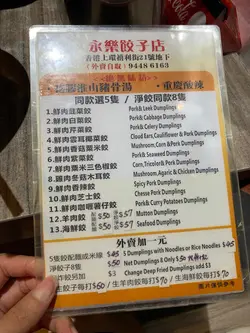 永樂餃子店
香港上環裕利街21號地下
(外賣自取) 9448 6163
淮山豬骨湯 • 重慶酸辣
同款選5隻 / 淨餃同款8隻
1. 鮮肉韭菜餃 Pork& Leek Dumplings
2. 鮮肉白菜餃 Pork& Cabbage Dumplings
3. 鮮肉芹菜餃 Pork& Celery Dumplings
4. 鮮肉雲耳椰菜餃 Cloud Ears, Cauliflower & Pork Dumplings
5. 鮮肉蘑菇餃 Mushroom& Pork Dumplings
6. 鮮肉紫菜餃 Pork& Seaweed Dumplings
7. 鮮肉粟米三色椒餃 Corn, Tricolor& Pork Dumplings
8. 雞肉冬菇木耳餃 Mushroom, Agaric & Chicken Dumplings
9. 鮮肉香辣餃 Spicy Pork Dumplings
10. 鮮肉芝士餃 Cheese Pork Dumplings
11. 鮮肉咖喱薯仔餃 Pork& Curry Potatoes Dumplings
12. 羊肉餃 $50 $57 Mutton Dumplings
13. 海鮮餃 $50 $57 Seafood Dumplings
外賣加一元
5隻餃配麵或米線 $45 5 Dumplings with Noodles or Rice Noodles $45
淨餃子8隻 $50 Net Dumplings 8 Only $50
炸餃另加 $3 Change Deep Fried Dumplings add $3
生餃子每打$60 / 生羊肉餃每打$70 / 生海鮮餃每打$70